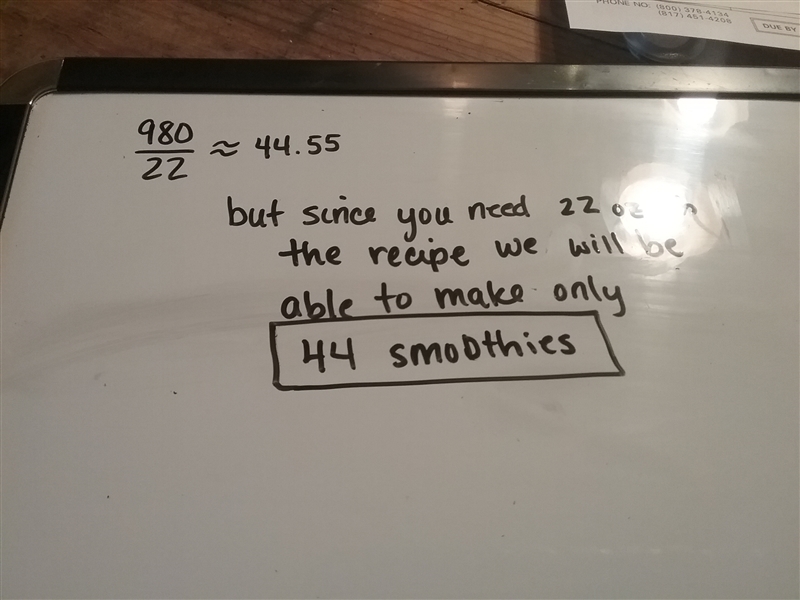 PHONE NO: (800) 378-4134
(817) 451-4208
DUE BY
980
22
≈ 44.55
but since you need 22 oz in
the recipe we will be
able to make only
44 smoothies